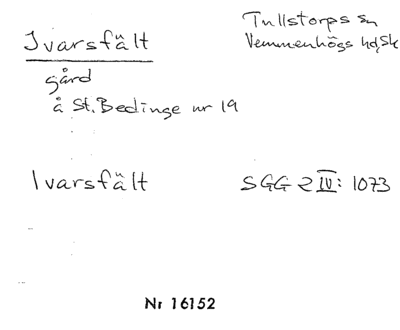 Ivarsfält
Tullstorps sn
Vemmenhögs hd, Sk
gård
å St. Bedinge nr 19
Ivarsfält
SGG 2 IV: 1073
Nr 16152